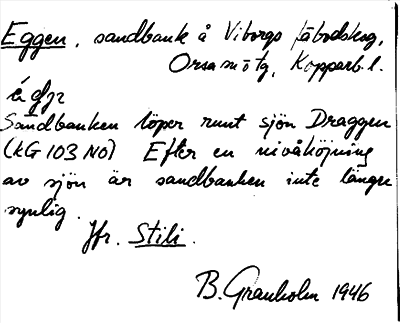 Eggen, sandbank å Viborgs fäbodskog,
Orsa mötg, Kopparb. l.
Sandbanken löper runt sjön Draggen
(KG 103 NO) Efter en nivåhöjning
av sjön är sandbanken inte längre
synlig.
Jfr. Stili.
B. Granholm 1946